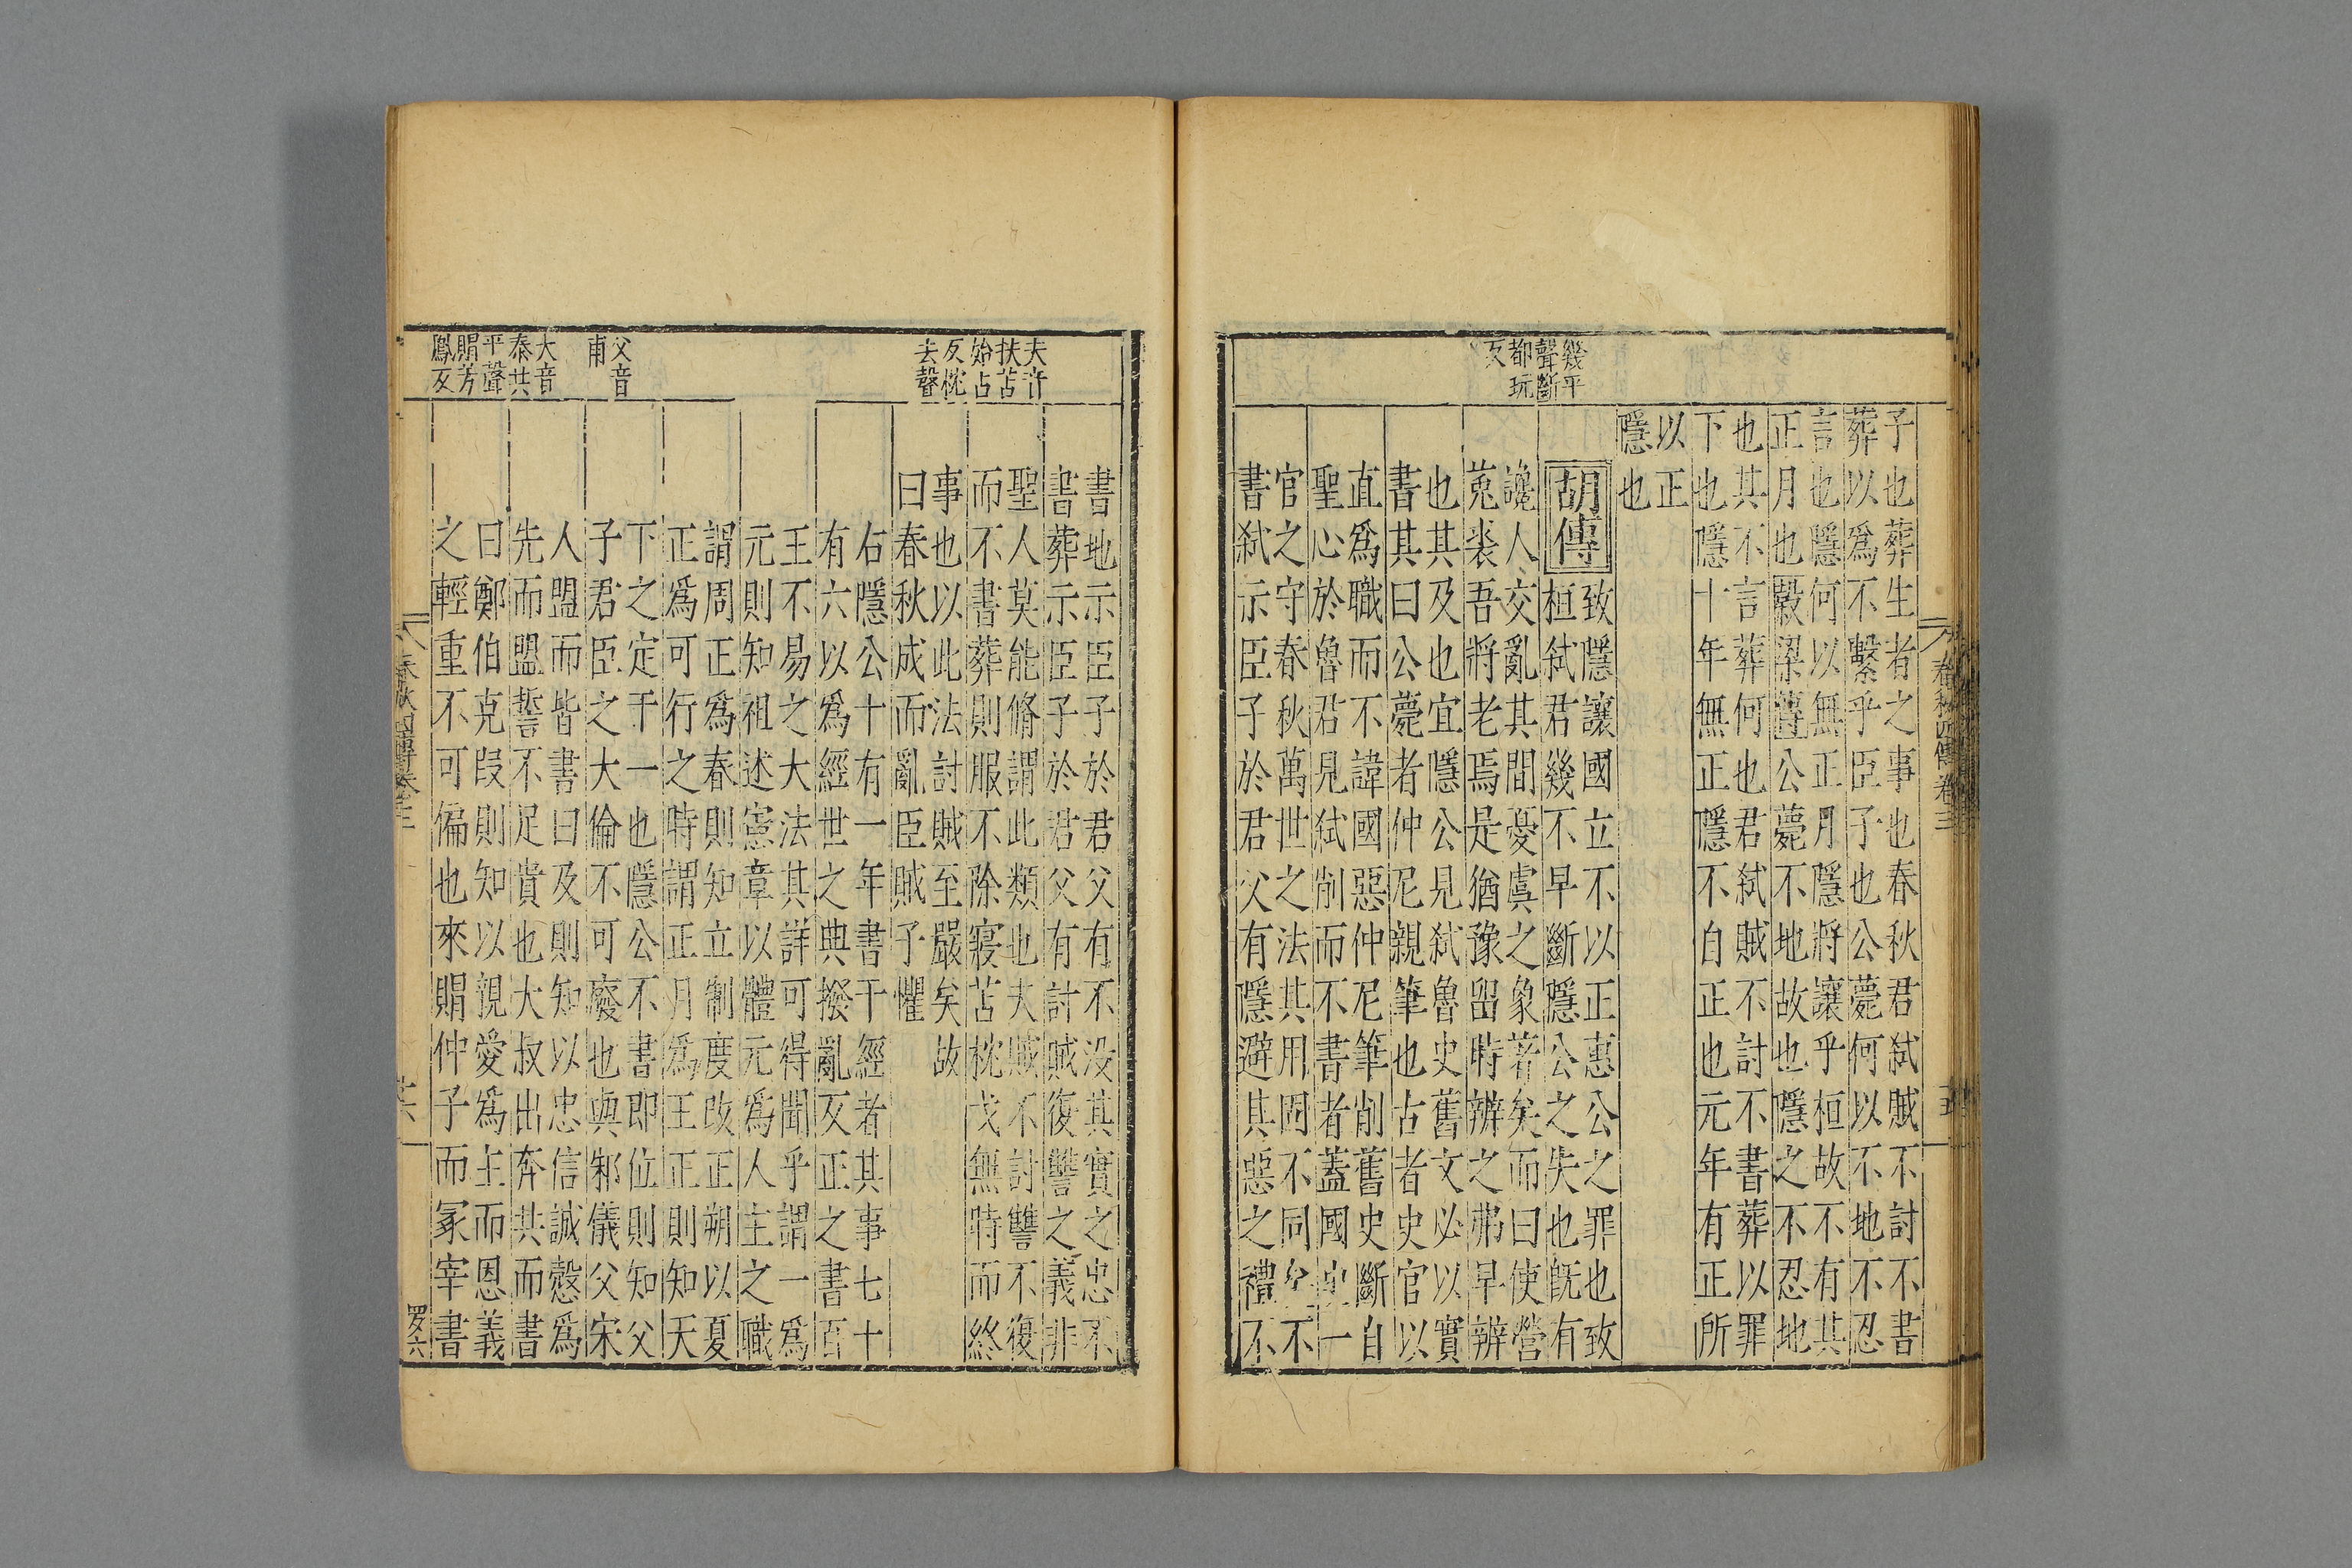 幾平
聲斷
都玩
反
子也葬生者之事也春秋君弑賊不討不書
葬以為不繫乎臣子也公薨何以不地不忍
言也隱何以無正月隱將讓乎桓故不有其
正月也穀梁傳公薨不地故也隱之不忍地
也其不言葬何也君弑賊不討不書葬以罪
下也隱十年無正隱不自正也元年有正所
以正
隱也
胡傳
致隱讓國立不以正惠公之罪也致
桓弑君幾不早斷隱公之失也既有
讒人交亂其間憂虞之象著矣而曰使營
菟裘吾將老焉是猶豫留時辨之弗早辨
也其及也宜隱公見弑魯史舊文必以實
書其曰公薨者仲尼親筆也古者史官以
直為職而不諱國惡仲尼筆削舊史斷自
聖心於魯君見弑削而不書者蓋國史一
官之守春秋萬世之法其用固不同矣不
書弑示臣子於君父有隱避其惡之禮不
春秋四傳卷三
夫音
扶苫
始占
反枕
去聲
父音
甫
大音
泰共
平聲
賵芳
鳳反
書地示臣子於君父有不没其實之忠不
書葬示臣子於君父有討賊復讐之義非
聖人莫能脩謂此類也夫賊不討讐不復
而不書葬則服不除寢苫枕戈無時而終
事也以此法討賊至嚴矣故
曰春秋成而亂臣賊子懼
右隱公十有一年書于經者其事七十
有六以為經世之典撥亂反正之書百
王不易之大法其詳可得聞乎謂一為
元則知祖述憲章以體元為人主之職
謂周正為春則知立制度改正朔以夏
正為可行之時謂正月為王正則知天
下之定于一也隱公不書即位則知父
子君臣之大倫不可廢也與邾儀父宋
人盟而皆書曰及則知以忠信誠慤為
先而盟誓不足貴也大叔出奔共而書
曰鄭伯克段則知以親愛為主而恩義
之輕重不可偏也來賵仲子而冢宰書
春秋四傳卷三
罗六